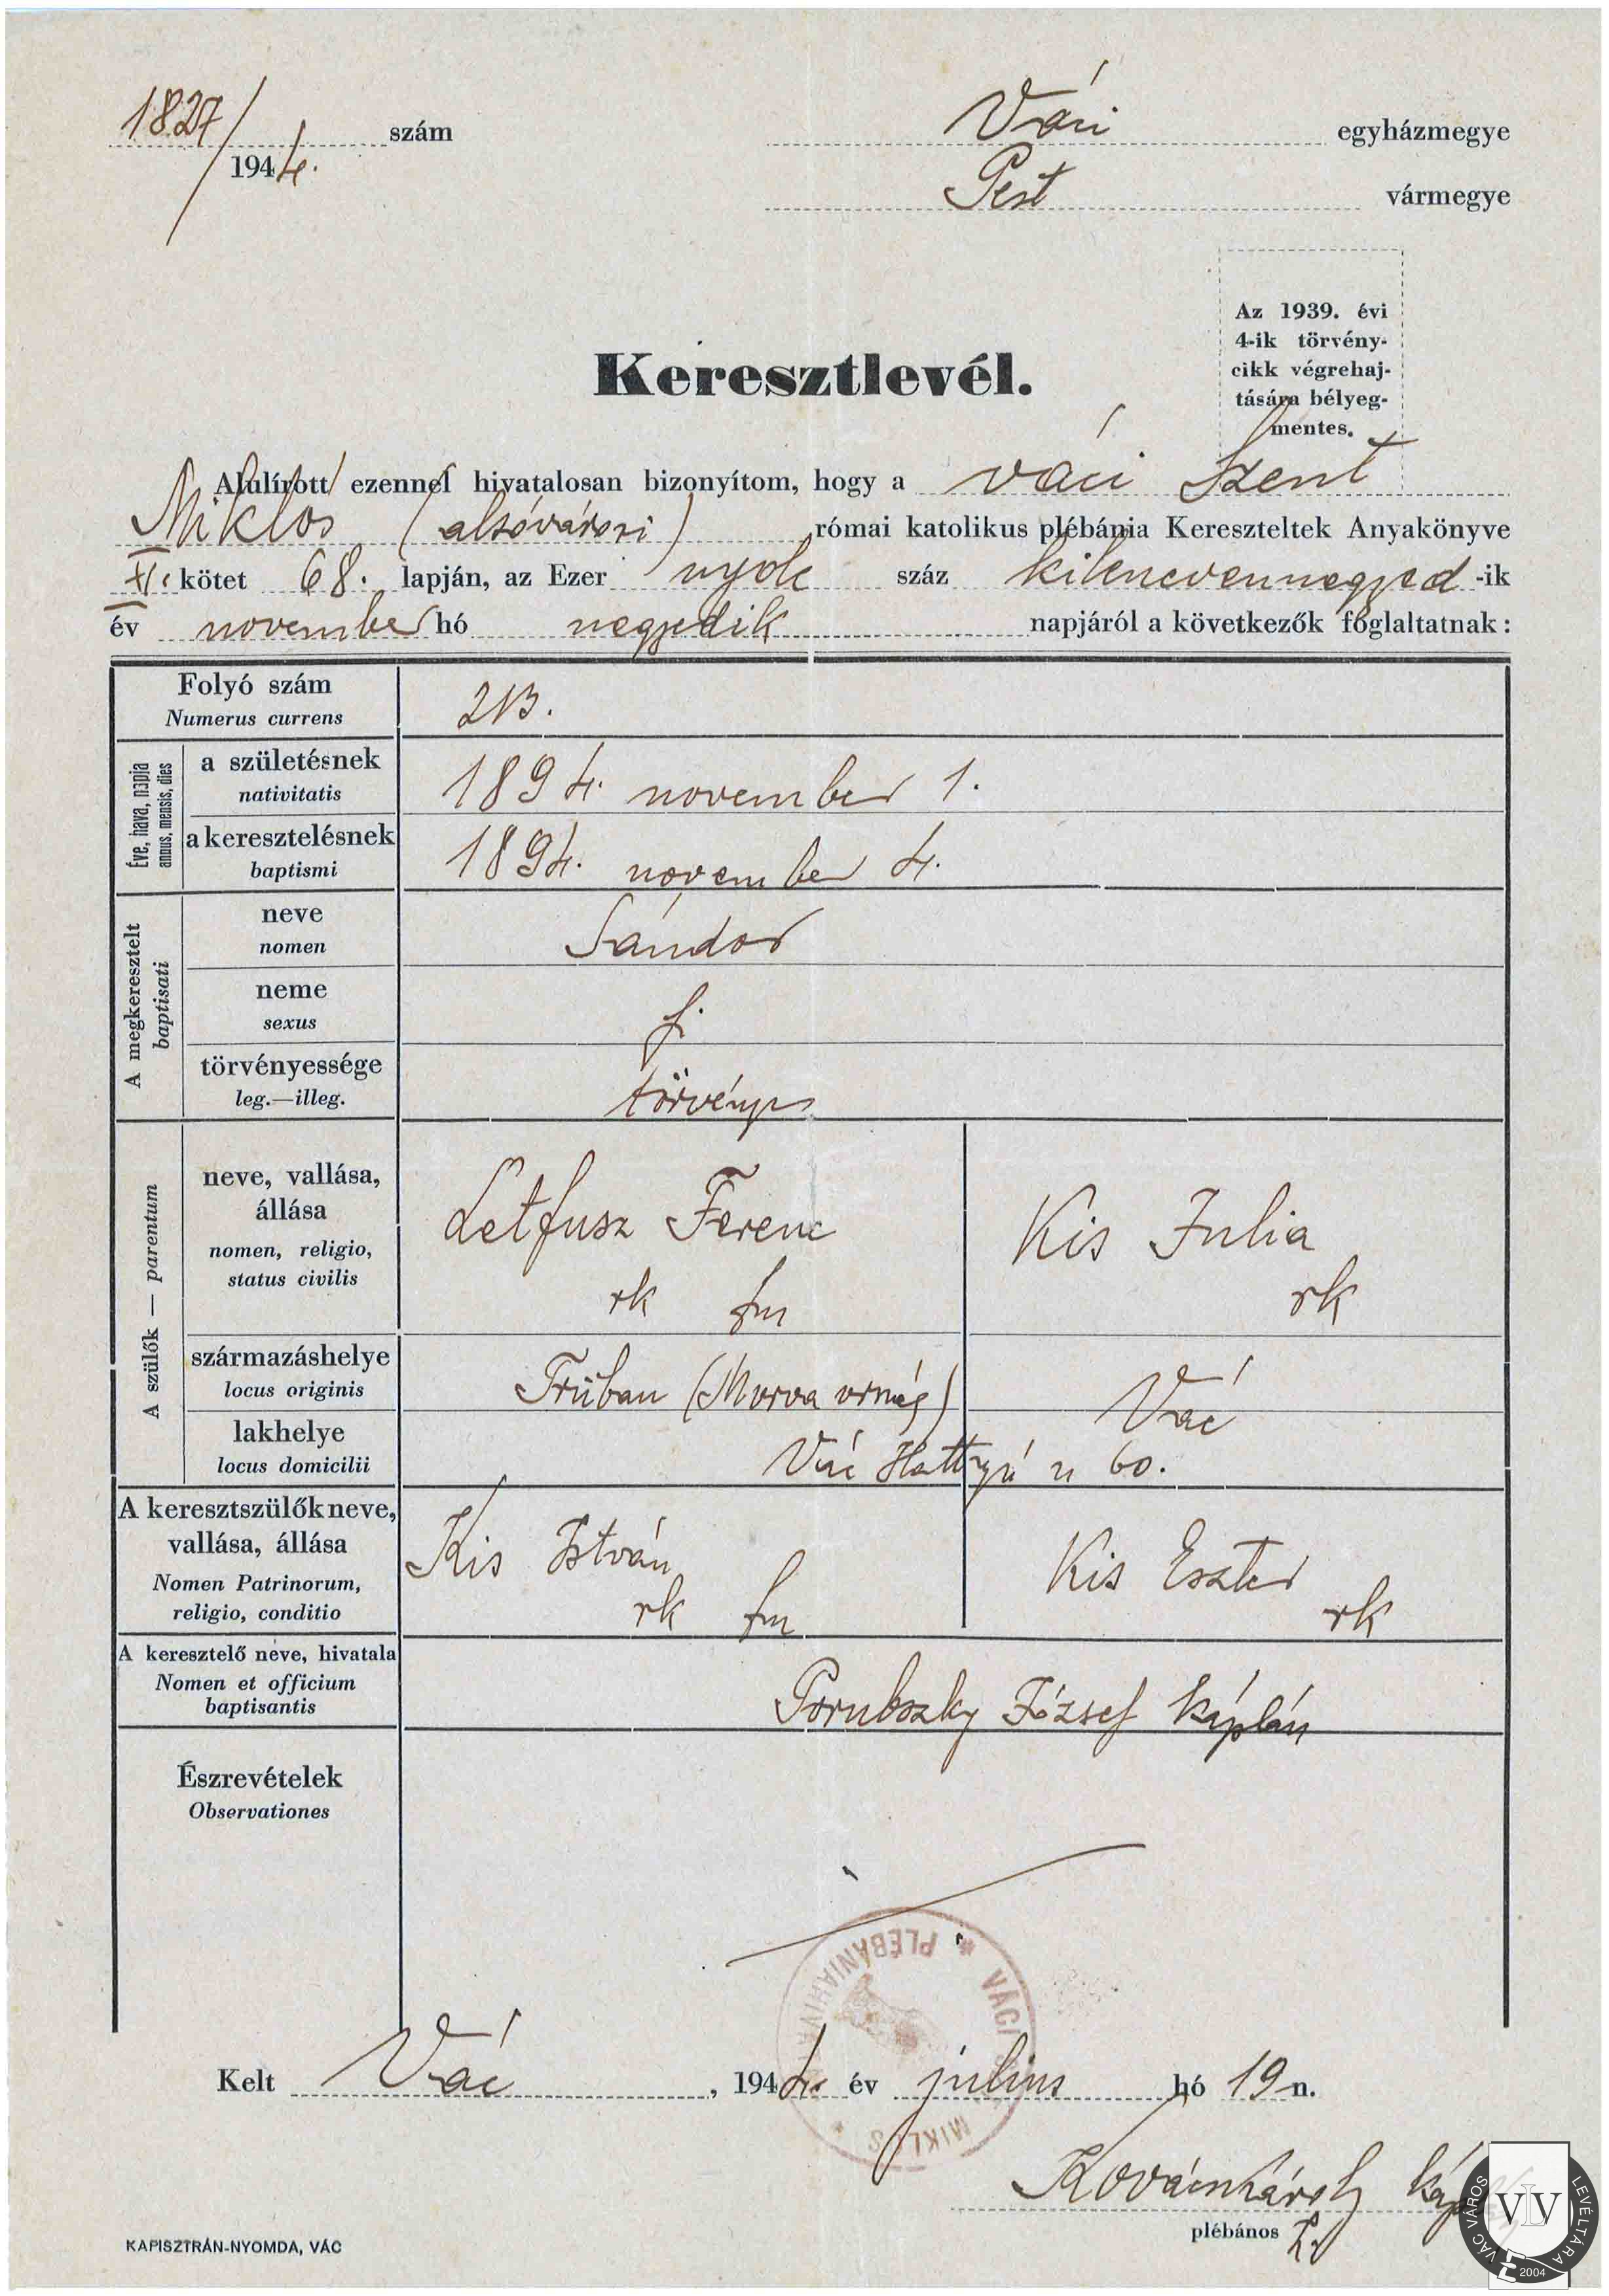 1827/ szám
1944.
Váci egyházmegye
Pest vármegye
Az 1939. évi
4-ik törvény-
cikk végrehaj-
tására bélyeg-
mentes.
Keresztlevél.
Alulírott ezennel hivatalosan bizonyítom, hogy a váci Szent
Miklós (alsóvárosi) római katolikus plébánia Kereszteltek Anyakönyve
kötet 68. lapján, az Ezer nyolc száz kilencvennegyed-ik
év november hó negyedik napjáról a következők foglaltatnak:
Folyó szám
Numerus currens
213.
Éve, hava, napja
annus, mensis, dies
a születésnek
nativitatis
1894. november 1.
a keresztelésnek
baptismi
1894. november 4.
A megkeresztelt
baptisati
neve
nomen
Sándor
neme
sexus
fi
törvényessége
leg.—illeg.
törvényes
A szülők — parentum
neve, vallása,
állása
nomen, religio,
status civilis
Letfusz Ferenc
rk fm
Kis Julia
rk
származáshelye
locus originis
Trübau (Morva ország)
Vác
lakhelye
locus domicilii
Vác Hattyú u 60.
A keresztszülők neve,
vallása, állása
Nomen Patrinorum,
religio, conditio
Kis István
rk fm
Kis Eszter
rk
A keresztelő neve, hivatala
Nomen et officium
baptisantis
Porubszky József káplán
Észrevételek
Observationes
VÁCI MIKLÓS * PLÉBÁNIAHIVATAL *
Kelt Vác, 1944. év július hó 19 n.
Kovács Károly
plébános h.
KAPISZTRÁN-NYOMDA, VÁC
VÁC VÁROS LEVÉLTÁRA
VLV
2004